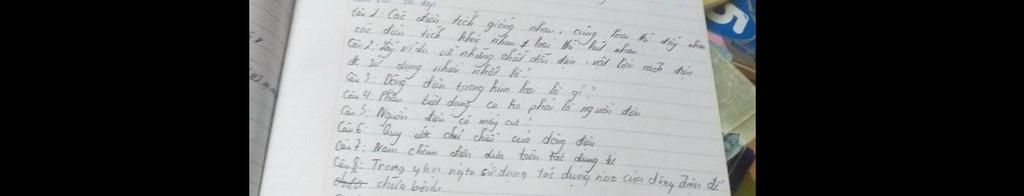 Câu 1: Các điện tích giống nhau, cùng loại thì đẩy nhau
các điện tích khác nhau loại thì hút nhau
Câu 2: Lấy ví dụ về những chất dẫn điện, vật liệu cách điện
dc sử dụng nhiều nhất là?
Câu 3: Dòng điện trong kim loại là gì?
Câu 4: Phân biệt dụng cụ ko phải là nguồn điện
Câu 5: Nguồn điện có mấy cực?
Câu 6: Quy ước chiều của dòng điện
Câu 7: Nam châm điện dựa trên tác dụng từ
Câu 8: Trong y học ngta sử dụng tác dụng nào của dòng điện để
chữa bệnh
5